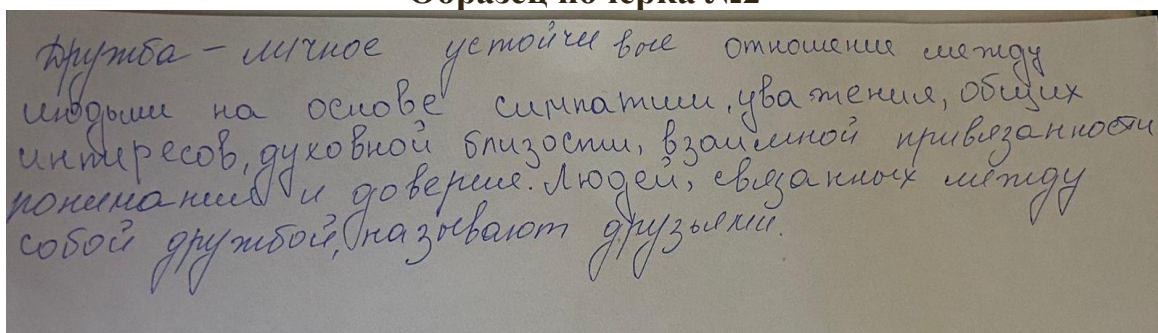 Образец почерка №2
Дружба – личное устойчивые отношение между
людьми на основе симпатии, уважения, общих
интересов, духовной близости, взаимной привязанности
понимания и доверие. Людей, связанных между
собой дружбой, называют друзьями.